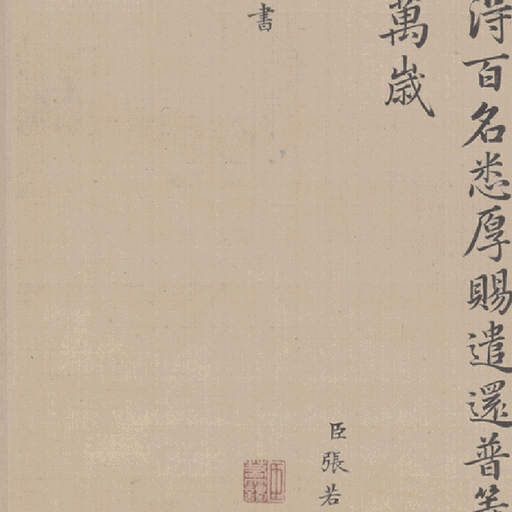 得百名悉厚賜遣還普等
萬歲
臣張若
書